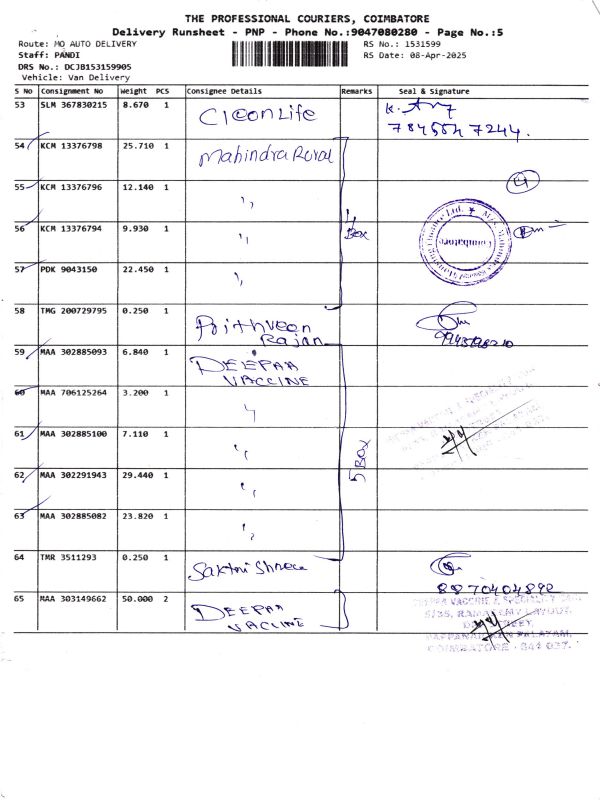 THE PROFESSIONAL COURIERS, COIMBATORE
Delivery Runsheet - PNP - Phone No.:9047080280 - Page No.:5
Route: MO AUTO DELIVERY
RS No.: 1531599
Staff: PANDI
RS Date: 08-Apr-2025
DRS No.: DCJB153159905
Vehicle: Van Delivery
S No Consignment No Weight PCS Consignee Details Remarks Seal & Signature
53 SLM 367830215 8.670 1 CleanLife
54 KCM 13376798 25.710 1 Mahindra Rural
55 KCM 13376796 12.140 1 ,, 4
56 KCM 13376794 9.930 1 ,, Box
57 PDK 9043150 22.450 1 ,,
58 TMG 200729795 0.250 1 Prithveen
Rajan
59 MAA 302885093 6.840 1 DEEPAA
VACCINE
60 MAA 706125264 3.200 1 ,,
61 MAA 302885100 7.110 1 ,, 5 Box
62 MAA 302291943 29.440 1 ,,
63 MAA 302885082 23.820 1 ,,
64 TMR 3511293 0.250 1 Sakthi Shree
8870404892
65 MAA 303149662 50.000 2 DEEPAA
VACCINE
5/35, RAMASAMY LAYOUT,
COIMBATORE - 641 037.